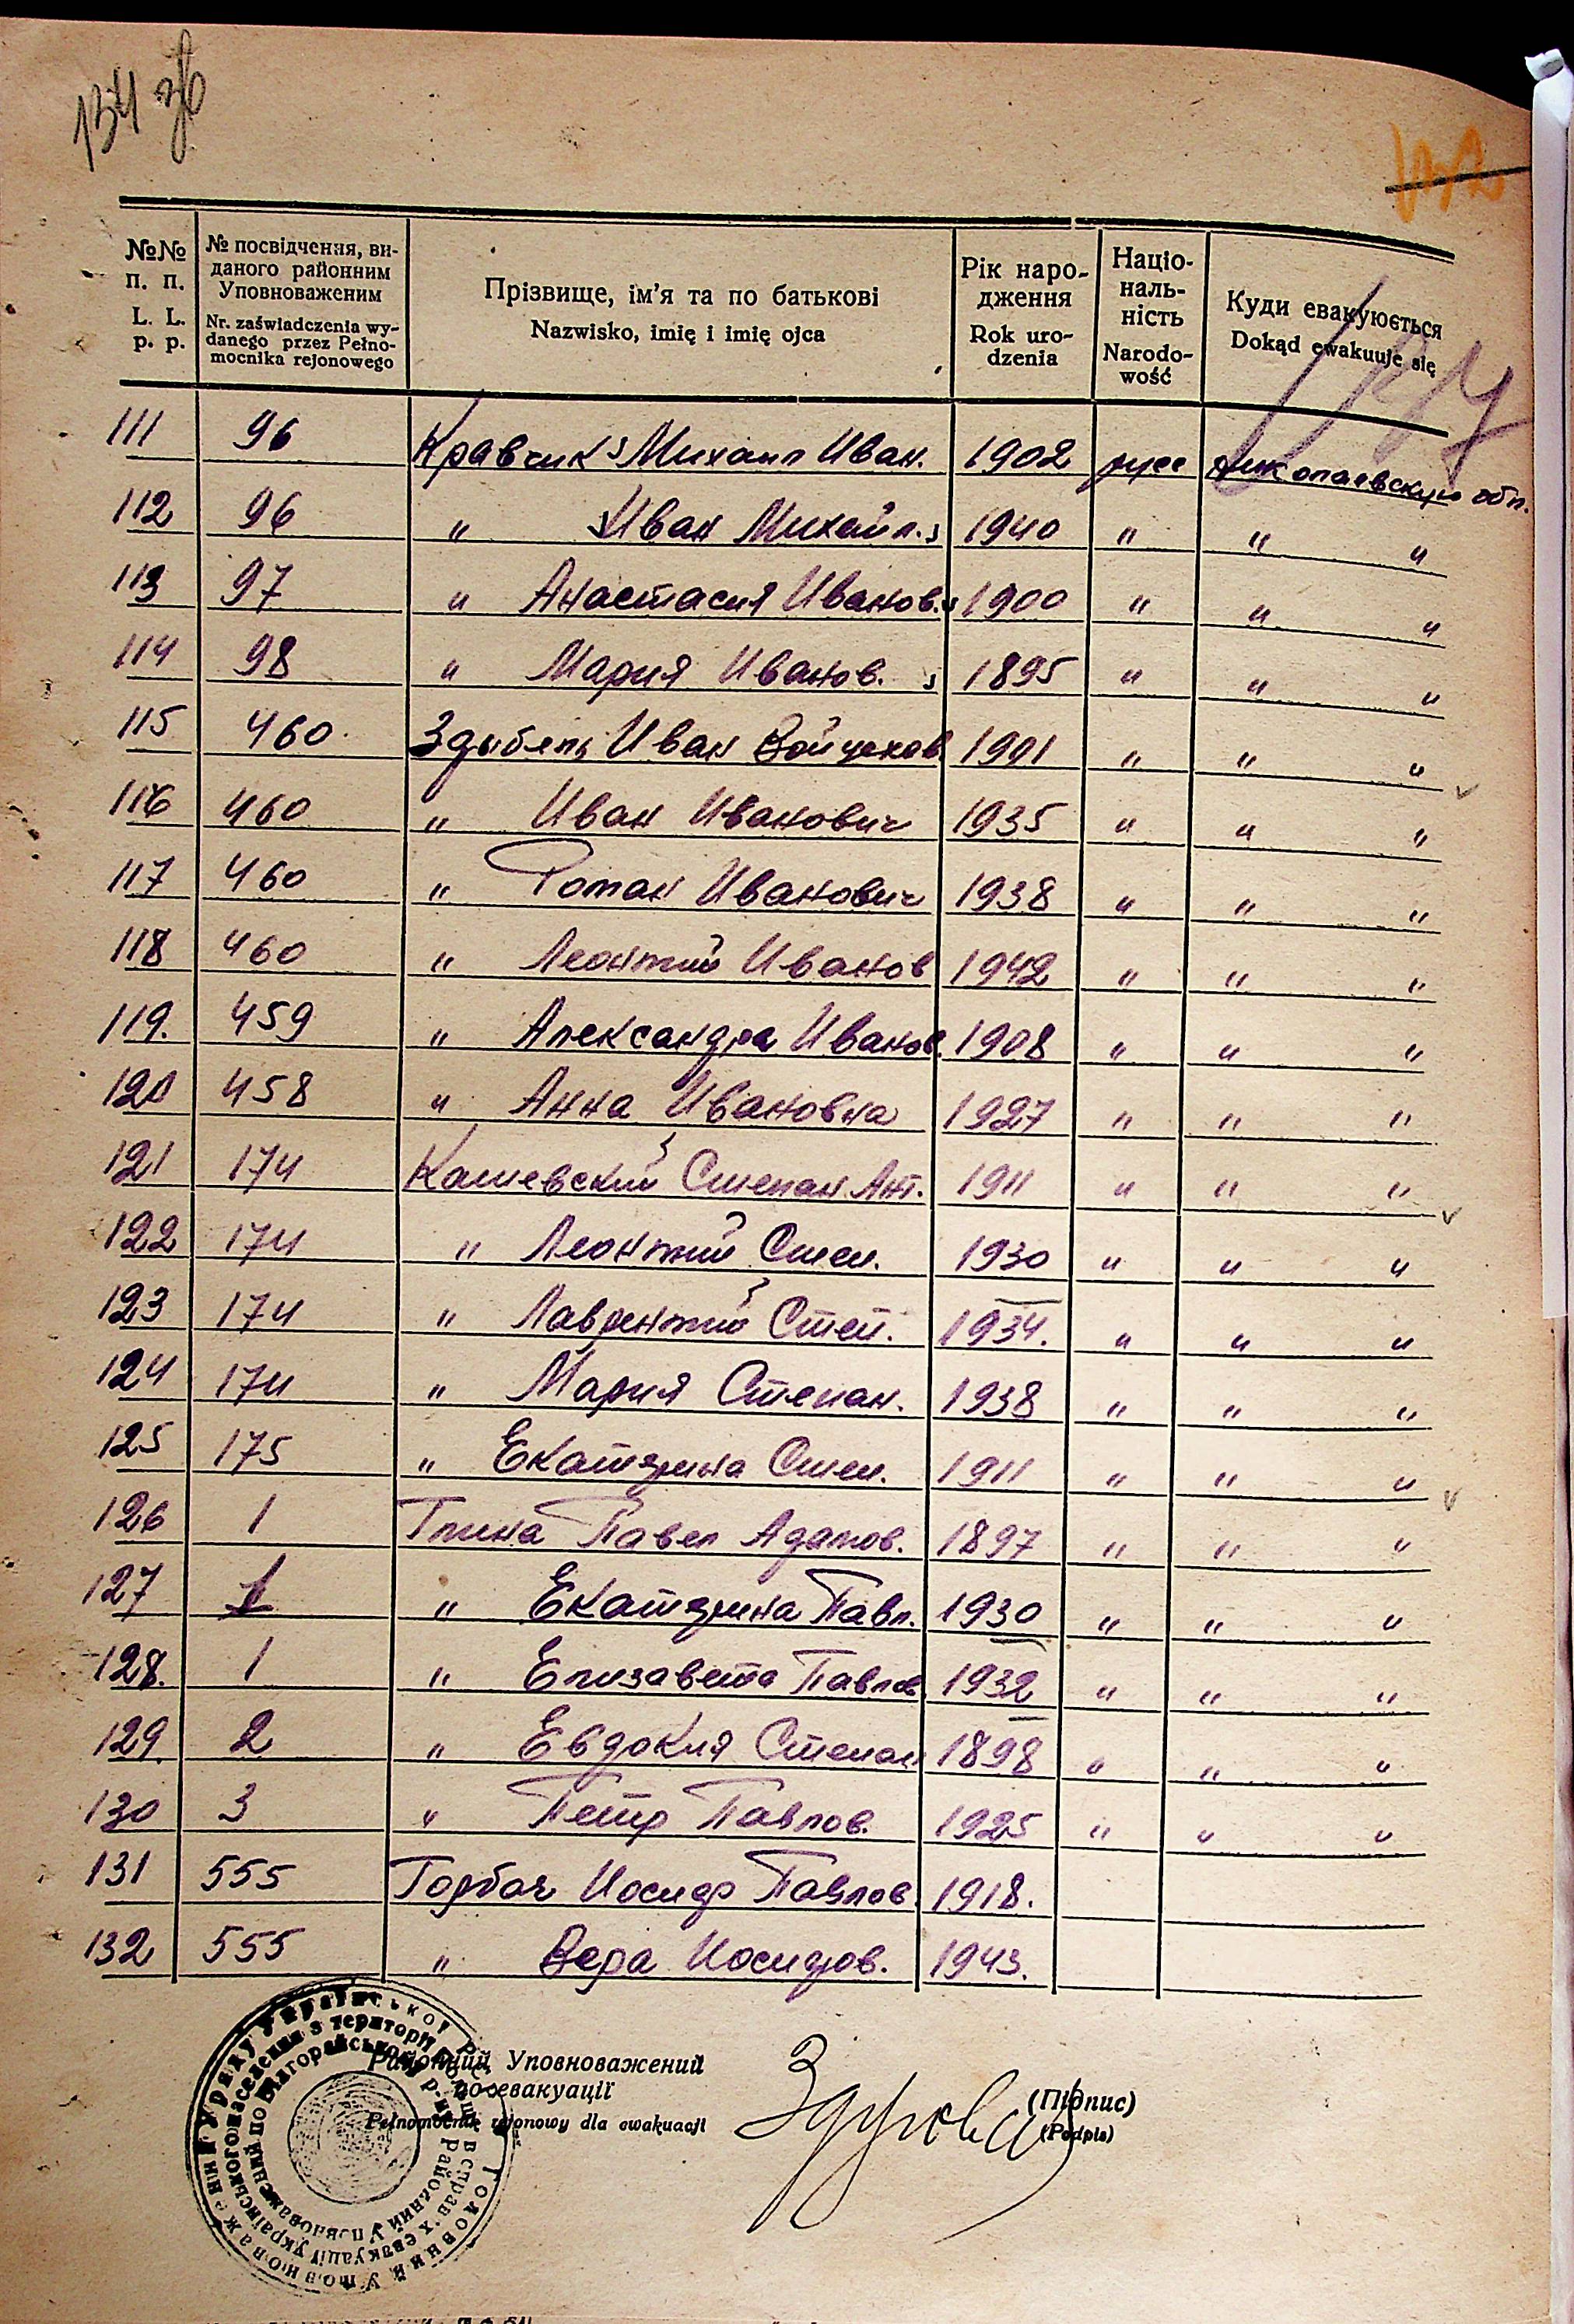 134 зв
№№ п. п. L. L. p. p.
№ посвідчення, ви-
даного районним
Уповноваженим
Nr. zaświadczenia wy-
danego przez Pełno-
mocnika rejonowego
Прізвище, ім'я та по батькові
Nazwisko, imię i imię ojca
Рік наро-
дження
Rok uro-
dzenia
Націо-
наль-
ність
Narodo-
wość
Куди евакуюється
Dokąd ewakuuje się
111 96 Кравчик Михаил Иван. 1902 русс Николаевскую обл.
112 96 " Иван Михайл. 1940 " " "
113 97 " Анастасия Иванов. 1900 " " "
114 98 " Мария Иванов. 1895 " " "
115 460 Здыбель Иван Войцехов 1901 " " "
116 460 " Иван Иванович 1935 " " "
117 460 " Роман Иванович 1938 " " "
118 460 " Леонтий Иванов 1942 " " "
119. 459 " Александра Иванов. 1908 " " "
120 458 " Анна Ивановна 1927 " " "
121 174 Кашевский Степан Ант. 1911 " " "
122 174 " Леонтий Степ. 1930 " " "
123 174 " Лаврентий Степ. 1934. " " "
124 174 " Мария Степан. 1938 " " "
125 175 " Екатерина Степ. 1911 " " "
126 1 Глина Павел Адамов. 1897 " " "
127 1 " Екатерина Павл. 1930 " " "
128. 1 " Елизавета Павлов 1932 " " "
129. 2 " Евдокия Степан 1898 " " "
130 3 " Петр Павлов. 1925 " " "
131 555 Горбач Иосиф Павлов. 1918.
132 555 " Вера Иосифов. 1943.
Районний Уповноважений
по евакуації
Pełnomocnik rejonowy dla ewakuacji
(Підпис)
(Podpis)